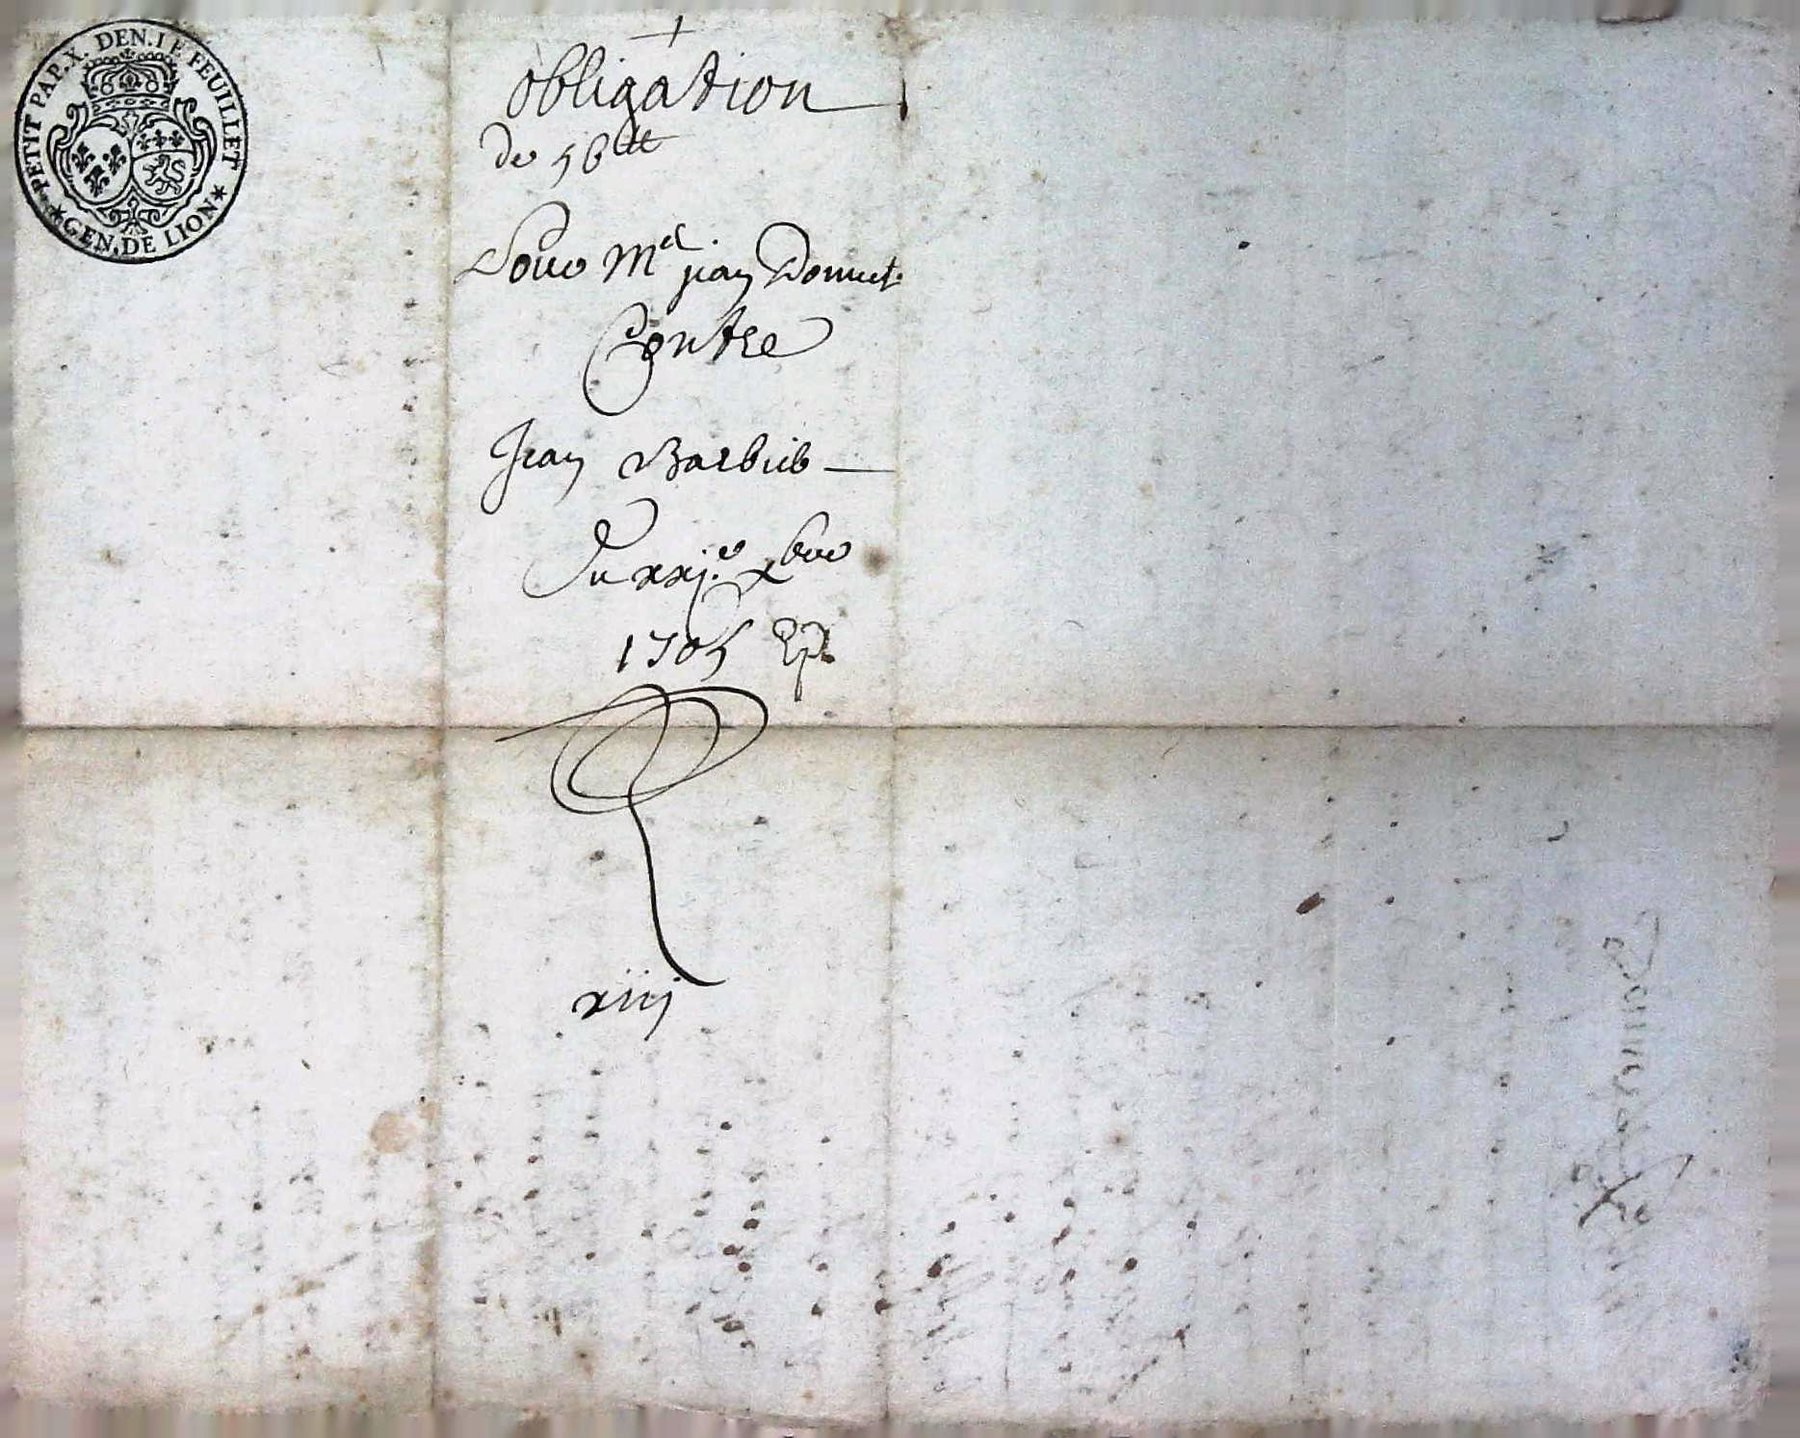 PETIT PAP. X. DEN. LE FEUILLET
GEN. DE LION
obligation
de 56 ₶
Pour Me jean Donnet
Contre
Jean Barbieb
Du xxje xbre
1705
xiiij